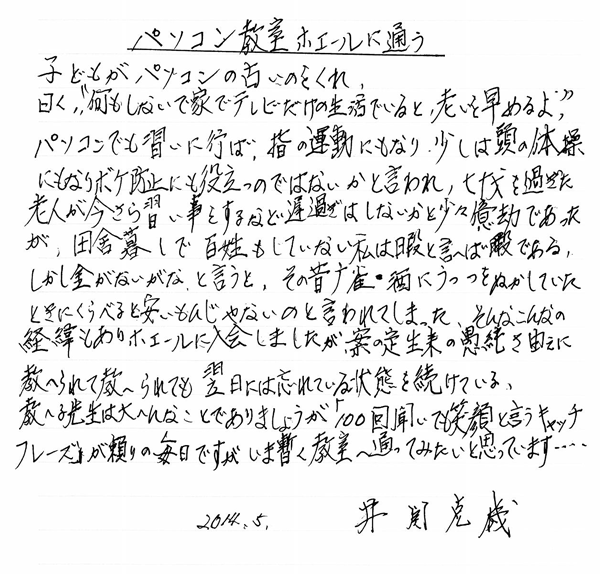 パソコン教室ホエールに通う
子どもがパソコンの古いのをくれ、
曰く、"何もしないで家でテレビだけの生活でいると、老いを早めるよ"
パソコンでも習いに行ば、指の運動にもなり、少しは頭の体操
にもなりボケ防止にも役立つのではないかと言われ、七十才を過ぎた
老人が今さら習い事をするなど遅過ぎはしないかと少々億劫であった
が、田舎暮しで百姓もしていない私は暇と言へば暇である、
しかし金がないがな、と言うと、その昔、雀・酒にうつつをぬかしていた
ときにくらべると安いもんじゃないのと言われてしまった、そんなこんなの
経緯もありホエールに入会しましたが、案の定生来の愚鈍さ由えに
教へられて教へられても翌日には忘れている状態を続けている、
教へる先生は大へんなことでありましょうが「100回聞いても笑顔と言うキャッチ
フレーズ」が頼りの毎日ですがいま暫く教室へ通ってみたいと思っています……
2014.5. 井関克機